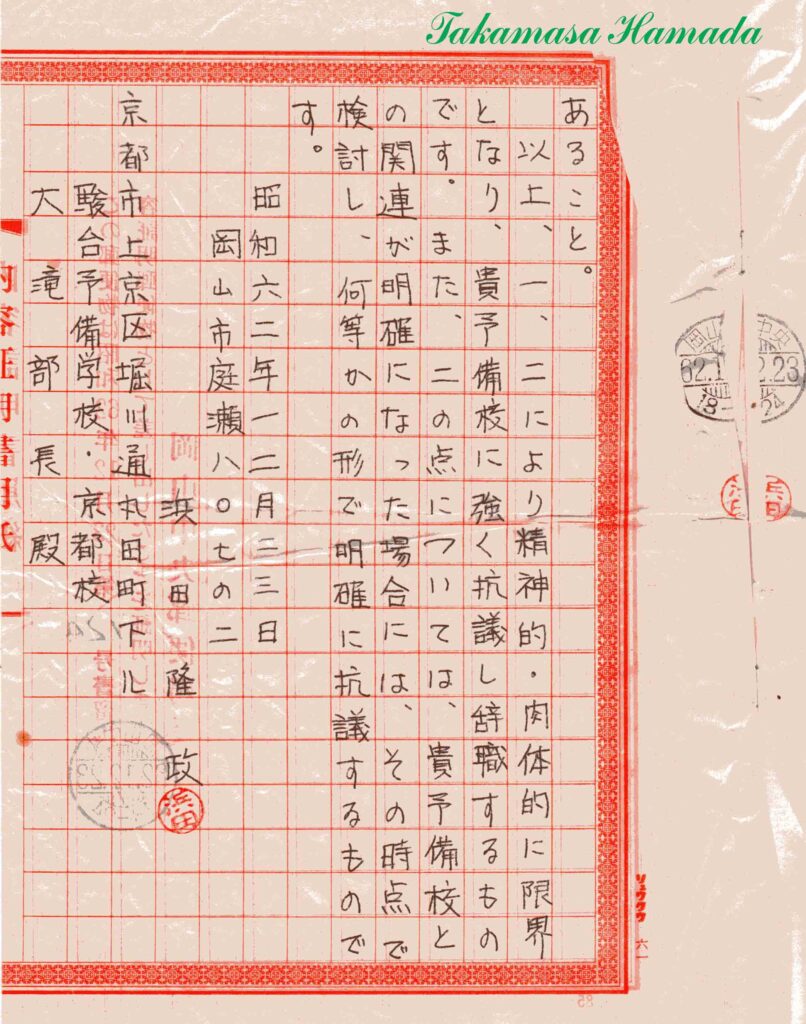 Takamasa Hamada
あること。
以上、一、二により精神的・肉体的に限界
となり、貴予備校に強く抗議し辞職するもの
です。また、二の点については、貴予備校と
の関連が明確になった場合には、その時点で
検討し、何等かの形で明確に抗議するもので
す。
昭和六二年一二月二三日
岡山市庭瀬八〇七の二
浜田隆政
浜田
京都市上京区堀川通丸田町下ル
駿台予備学校・京都校
大滝部長殿
リュウクウ
六一